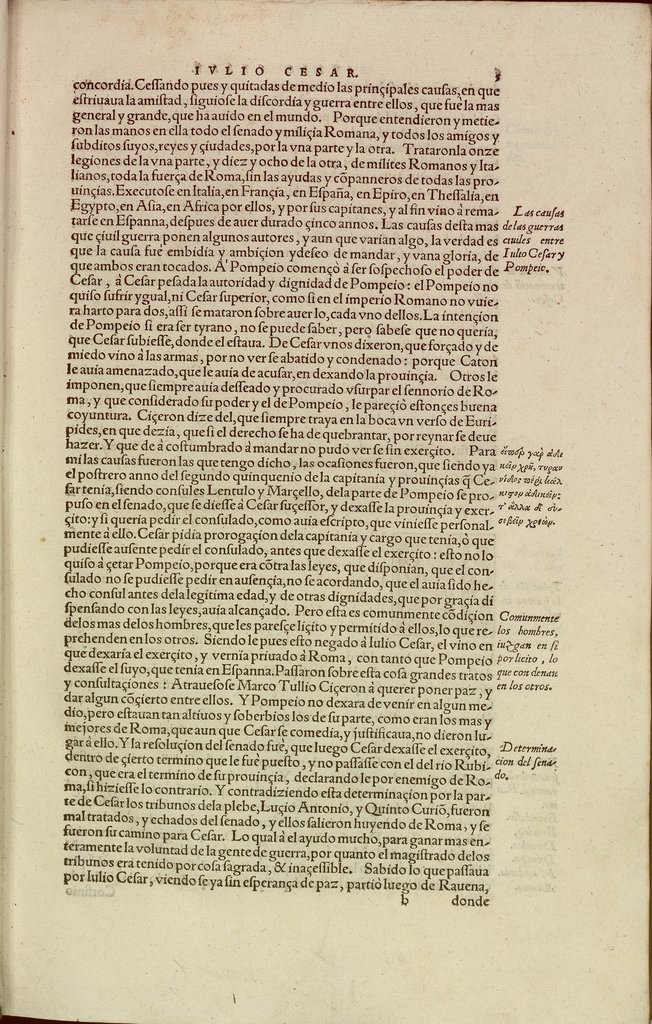 IVLIO CESAR.
concordia. Ceſſando pues y quitadas de medio las prinçipales cauſas, en que
eſtriuaua la amiſtad, ſiguioſe la diſcordia y guerra entre ellos, que fue la mas
general y grande, que ha auido en el mundo. Porque entendieron y metie-
ron las manos en ella todo el ſenado y miliçia Romana, y todos los amigos y
ſubditos ſuyos, reyes y çiudades, por la vna parte y la otra. Trataronla onze
legiones de la vna parte, y diez y ocho de la otra, de milites Romanos y Ita-
lianos, toda la fuerça de Roma, ſin las ayudas y cõpanneros de todas las pro-
uinçias. Executoſe en Italia, en Françia, en Eſpaña, en Epiro, en Theſſalia, en
Egypto, en Aſia, en Africa por ellos, y por ſus capitanes, y al fin vino à rema-
tarſe en Eſpanna, deſpues de auer durado çinco annos. Las cauſas deſta mas
que çiuil guerra ponen algunos autores, y aun que varian algo, la verdad es
que la cauſa fue embidia y ambiçion y deſeo de mandar, y vana gloria, de
que ambos eran tocados. A' Pompeio començò à ſer ſoſpechoſo el poder de
Ceſar, à Ceſar peſada la autoridad y dignidad de Pompeio: el Pompeio no
quiſo ſufrir ygual, ni Ceſar ſuperior, como ſi en el imperio Romano no vuie-
ra harto para dos, aſſi ſe mataron ſobre auer lo, cada vno dellos. La intençion
de Pompeio ſi era ſer tyrano, no ſe puede ſaber, pero ſabeſe que no queria,
que Ceſar ſubieſſe, donde el eſtaua. De Ceſar vnos dixeron, que forçado y de
miedo vino à las armas, por no ver ſe abatido y condenado: porque Caton
le auia amenazado, que le auia de acuſar, en dexando la prouinçia. Otros le
imponen, que ſiempre auia deſſeado y procurado vſurpar el ſennorio de Ro-
ma, y que conſiderado ſu poder y el de Pompeio, le pareçiò eſtonçes buena
coyuntura. Ciçeron dize del, que ſiempre traya en la boca vn verſo de Euri-
pides, en que dezia, que ſi el derecho ſe ha de quebrantar, por reynar ſe deue
hazer. Y que de à coſtumbrado à mandar no pudo ver ſe ſin exerçito. Para
mi las cauſas fueron las que tengo dicho, las ocaſiones fueron, que ſiendo ya
el poſtrero anno del ſegundo quinquenio de la capitania y prouinçias q̃ Ce-
ſar tenia, ſiendo conſules Lentulo y Marçello, dela parte de Pompeio ſe pro-
puſo en el ſenado, que ſe dieſſe à Ceſar ſuçeſſor, y dexaſſe la prouinçia y exer-
çito: y ſi queria pedir el conſulado, como auia eſcripto, que vinieſſe perſonal-
mente à ello. Ceſar pidia prorogaçion dela capitania y cargo que tenia, ò que
pudieſſe auſente pedir el conſulado, antes que dexaſſe el exerçito: eſto no lo
quiſo à çetar Pompeio, porque era cõtra las leyes, que diſponian, que el con-
ſulado no ſe pudieſſe pedir en auſençia, no ſe acordando, que el auia ſido he-
cho conſul antes dela legitima edad, y de otras dignidades, que por graçia di
ſpenſando con las leyes, auia alcançado. Pero eſta es comunmente cõdiçion
delos mas delos hombres, que les pareſçe liçito y permitido à ellos, lo que re-
prehenden en los otros. Siendo le pues eſto negado à Iulio Ceſar, el vino en
que dexaria el exerçito, y vernia priuado à Roma, con tanto que Pompeio
dexaſſe el ſuyo, que tenia en Eſpanna. Paſſaron ſobre eſta coſa grandes tratos
y conſultaçiones: Atraueſoſe Marco Tullio Ciçeron à querer poner paz, y
dar algun cõçierto entre ellos. Y Pompeio no dexara de venir en algun me-
dio, pero eſtauan tan altiuos y ſoberbios los de ſu parte, como eran los mas y
mejores de Roma, que aun que Ceſar ſe comedia, y juſtificaua, no dieron lu-
gar à ello. Y la reſoluçion del ſenado fue, que luego Ceſar dexaſſe el exerçito,
dentro de çierto termino que le fue pueſto, y no paſſaſſe con el del rio Rubi-
con, que era el termino de ſu prouinçia, declarando le por enemigo de Ro-
ma, ſi hizieſſe lo contrario. Y contradiziendo eſta determinaçion por la par-
te de Ceſar los tribunos dela plebe, Luçio Antonio, y Quinto Curiõ, fueron
mal tratados, y echados del ſenado, y ellos ſalieron huyendo de Roma, y ſe
fueron ſu camino para Ceſar. Lo qual à el ayudo mucho, para ganar mas en-
teramente la voluntad de la gente de guerra, por quanto el magiſtrado delos
tribunos era tenido por coſa ſagrada, & inaçeſſible. Sabido lo que paſſaua
por Iulio Ceſar, viendo ſe ya ſin eſperança de paz, partiò luego de Rauena,
b donde
Las cauſas
de las guerras
ciuiles entre
Iulio Ceſar y
Pompeio.
Comunmente
los hombres,
iuzgan en ſi
por licito, lo
que condenan
en los otros.
Determina-
cion del ſena-
do.